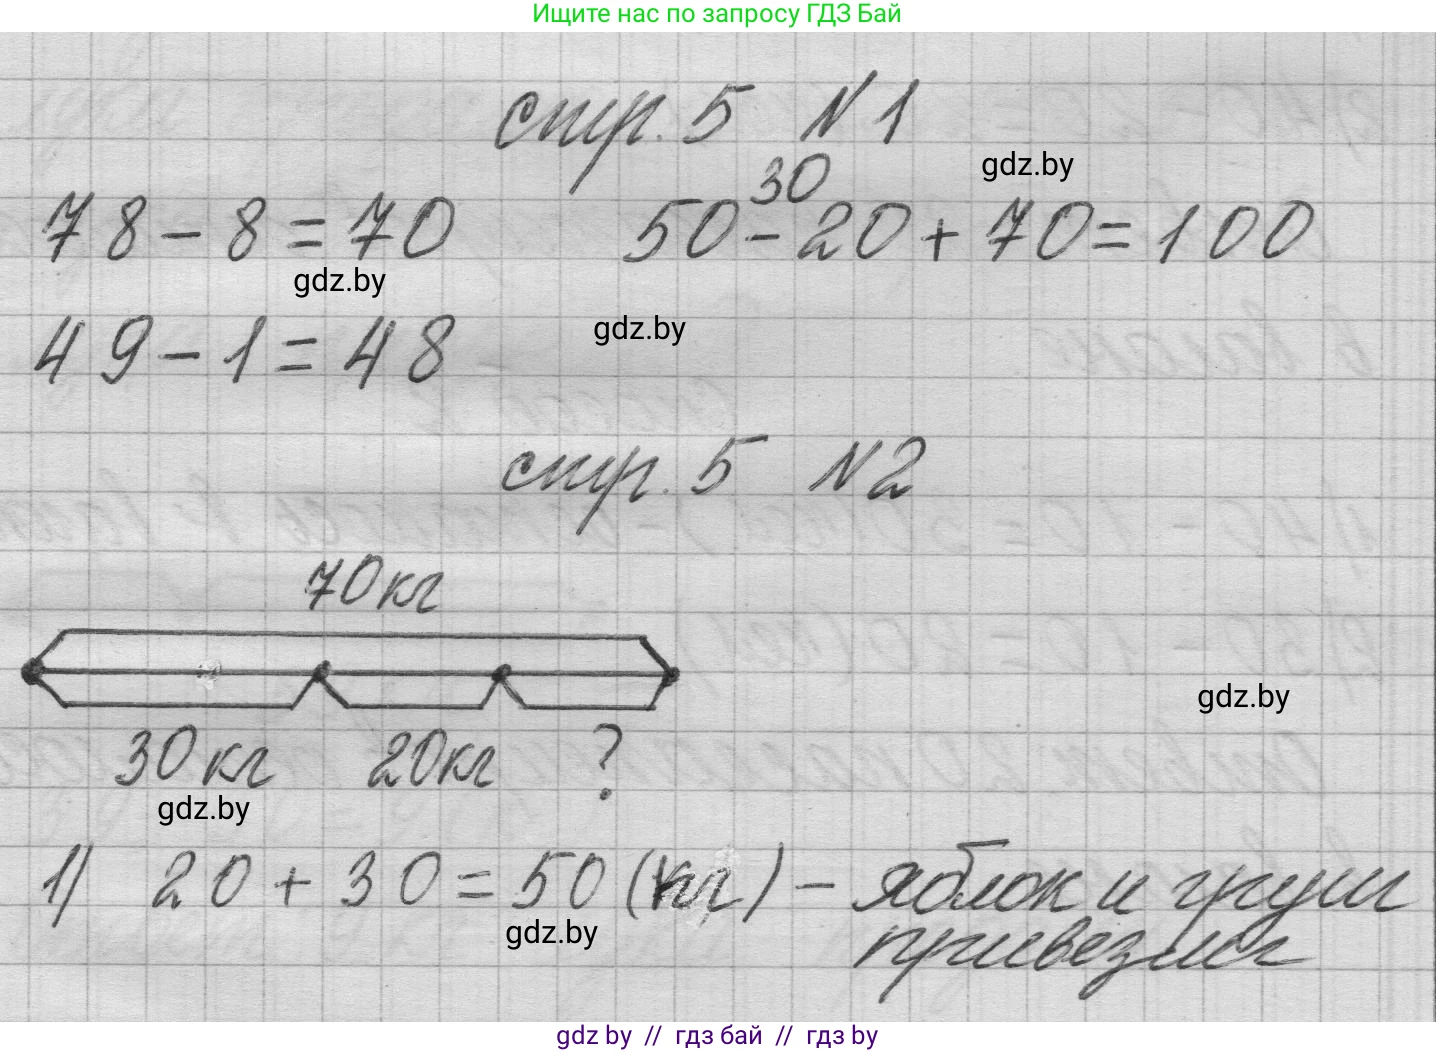 Ищите нас по запросу ГДЗ Бай
стр. 5 №1
gdz.by
30
78 - 8 = 70 50 - 20 + 70 = 100
gdz.by
gdz.by
49 - 1 = 48
стр. 5 №2
70 кг
gdz.by
30 кг 20 кг ?
gdz.by
1) 20 + 30 = 50 (кг) - яблок и груш
gdz.by
привезли
gdz by // гдз бай // гдз by